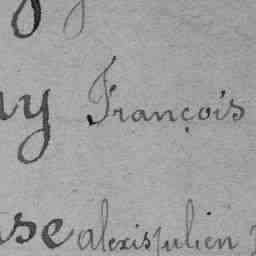 ay François
se alexis julien